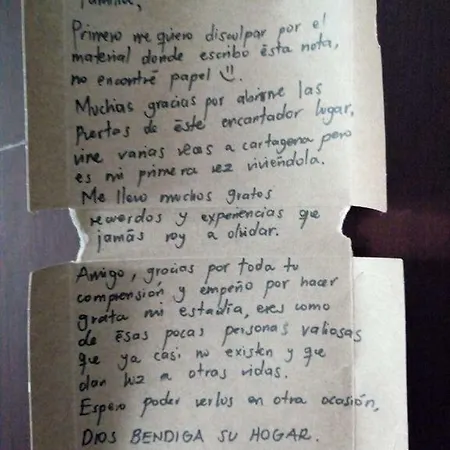 Familia,
Primero me quiero disculpar por el
material donde escribo ésta nota,
no encontré papel :).
Muchas gracias por abrirme las
puertas de éste encantador lugar,
vine varias veces a cartagena pero
es mi primera vez viviéndola.
Me llevo muchos gratos
recuerdos y experiencias que
jamás voy a olvidar.
Amigo, gracias por toda tu
comprensión y empeño por hacer
grata mi estadía, eres como
de ésas pocas personas valiosas
que ya casi no existen y que
dan luz a otras vidas.
Espero poder verlos en otra ocasión,
DIOS BENDIGA SU HOGAR.